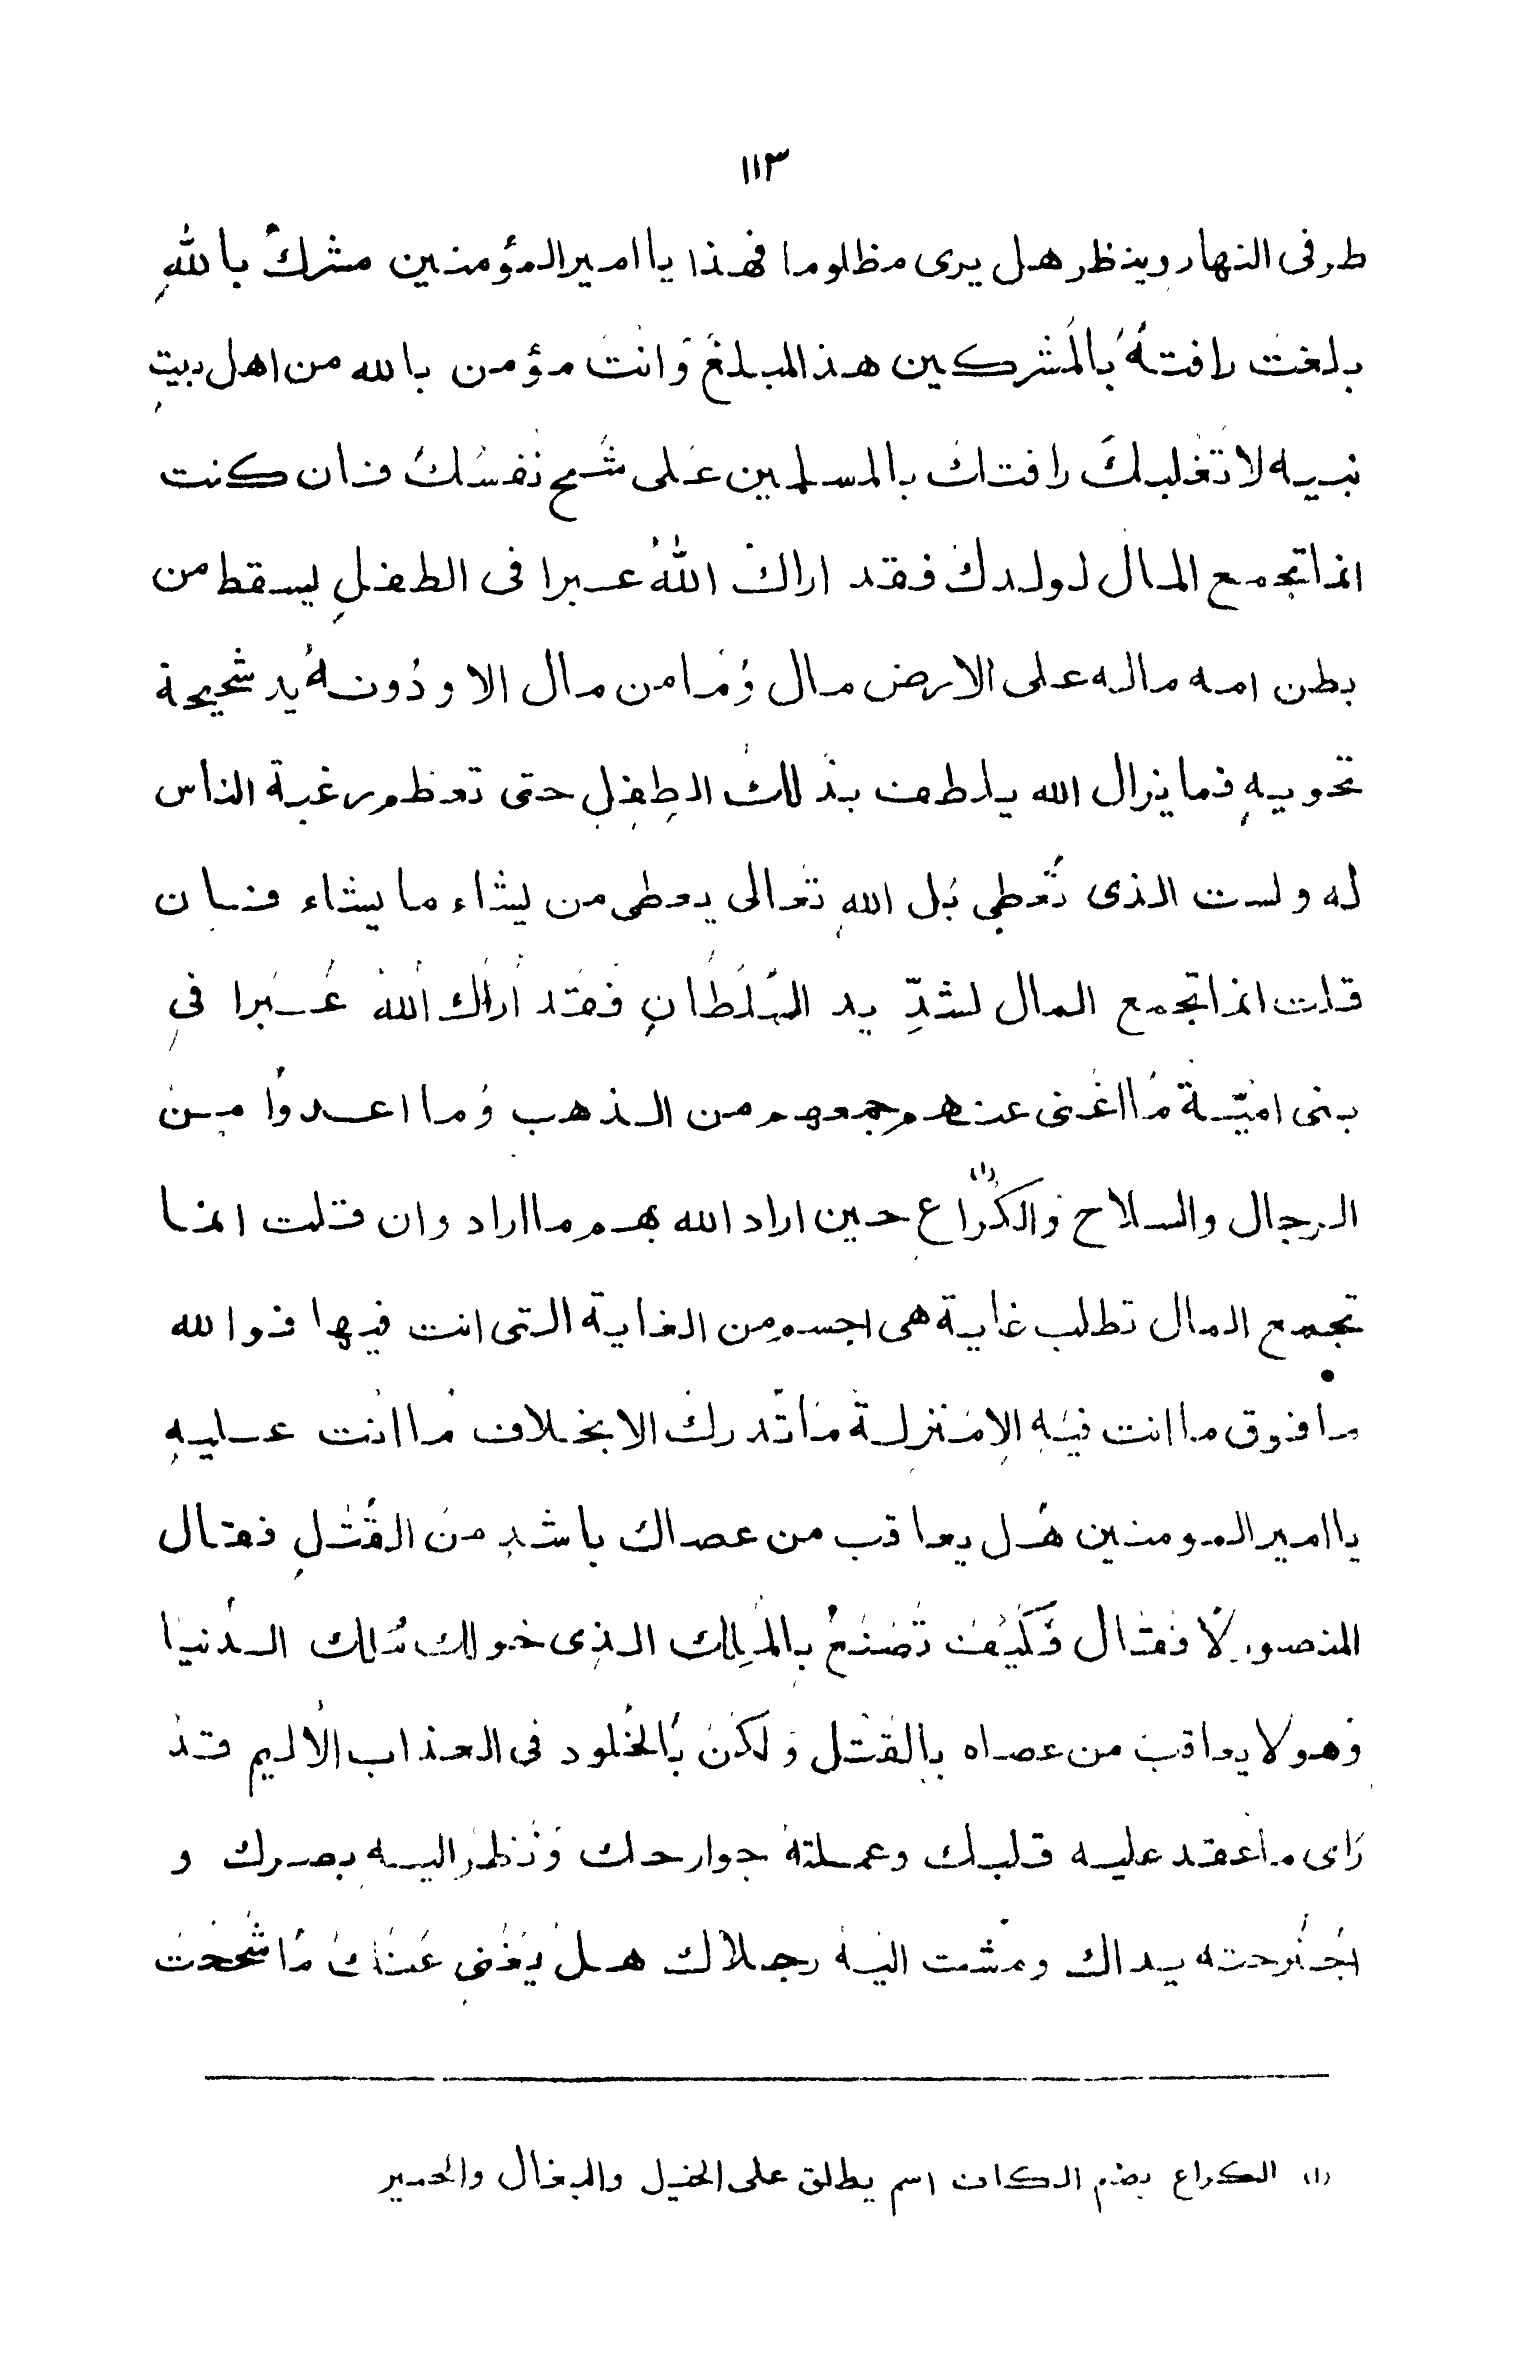 ١١٣
طرفى النهار وينظر هل يرى مظلوما فهذا يا امير المؤمنين مشرك باللهِ
بلغت رافتهُ بالمشركين هذ المبلغ وَانت مؤمن بالله من اهل بيتِ
نبيه لا تغلبك رافتك بالمسلمين عَلى شُح نفسك فان كنت
انما تجمع المال لولدك فقد اراك اللهُ عبرا فى الطفلِ يسقط من
بطن امه ماله على الارض مال وَما من مال الا ودُونهُ يد شحيحة
تحويهِ فما يزال الله يلطف بذلك الطِفلِ حتى تعظم رغبة الناس
له ولست الذى تُعطى بَل اللهِ تعالى يعطى من يشاء ما يشاء فان
قلت انما تجمع المال لشدِّ يد السُلطَانِ فقَد اَراك الله عُبَرا فِى
بنى اميّة مَا اغنى عنهم جمعهم من الذهب وَما اعدوا من
الرجال والسلاح والكُرَاع (١) حين اراد الله بهم ما اراد وان قلت انما
تجمع المال تطلب غاية هى اجسم من الغاية التى انت فيها فوالله
ما فوق ما انت فيه الا مَنزلة مَا تدرك الا بخلاف مَا انت عليهِ
يا امير المومنين هَل يعاقب من عصاك باشدِ من القَتلِ فقال
المنصور لاَ فقال فَكَيفَ تَصنَعُ بالمَلِك الذِى خولك مُلك الدُنيا
وَهو لا يعاقب من عصاه بالقَتل وَلكن بالخُلود فى العذاب الاليم قد
رَاى ما عقد عليه قلبك وعملته جوارحك وَنظر اليه بصرك و
اجترحته يداك ومشت اليه رجلاك هل يَغنى عَنك مَا شححت
(١) الكراع بضم الكاف اسم يطلق على الخيل والبغال والحمير